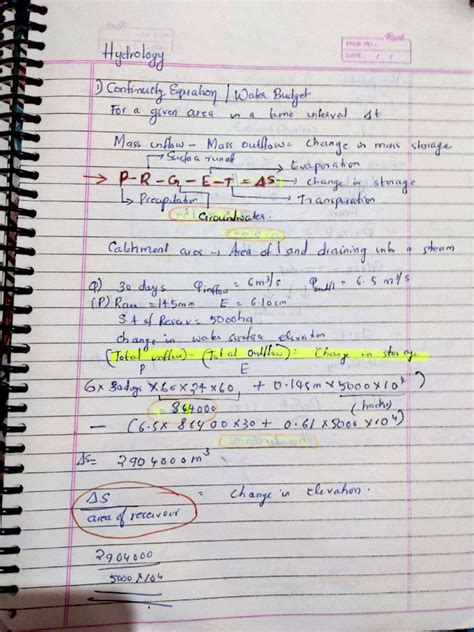 Rysh
PAGE NO.:
DATE: / /
Hydrology
1) Continuity Equation / Water Budget
For a given area in a time interval Δt
Mass inflow - Mass outflow = change in mass storage
Surface runoff
Evaporation
→ P - R - G - E - T = ΔS → change in storage
Precipitation
Transpiration
Groundwater
Catchment area → Area of land draining into a steam
Q) 30 days Qinflow = 6m³/s Qoutfl = 6.5 m³/s
(P) Rain = 145mm E = 6.10cm
SA of Reserv = 5000ha
change in water surface elevation
(Total inflow) - (Total outflow) = Change in storage
P E
6 × 30days × 60 × 24 × 60 + 0.145m × 5000 × 10⁴
864000 (hacks)
- (6.5 × 86400 × 30 + 0.61 × 5000 × 10⁴)
ΔS = 2904000 m³
ΔS = Change in Elevation.
area of reservour
2904000
5000 × 10⁴